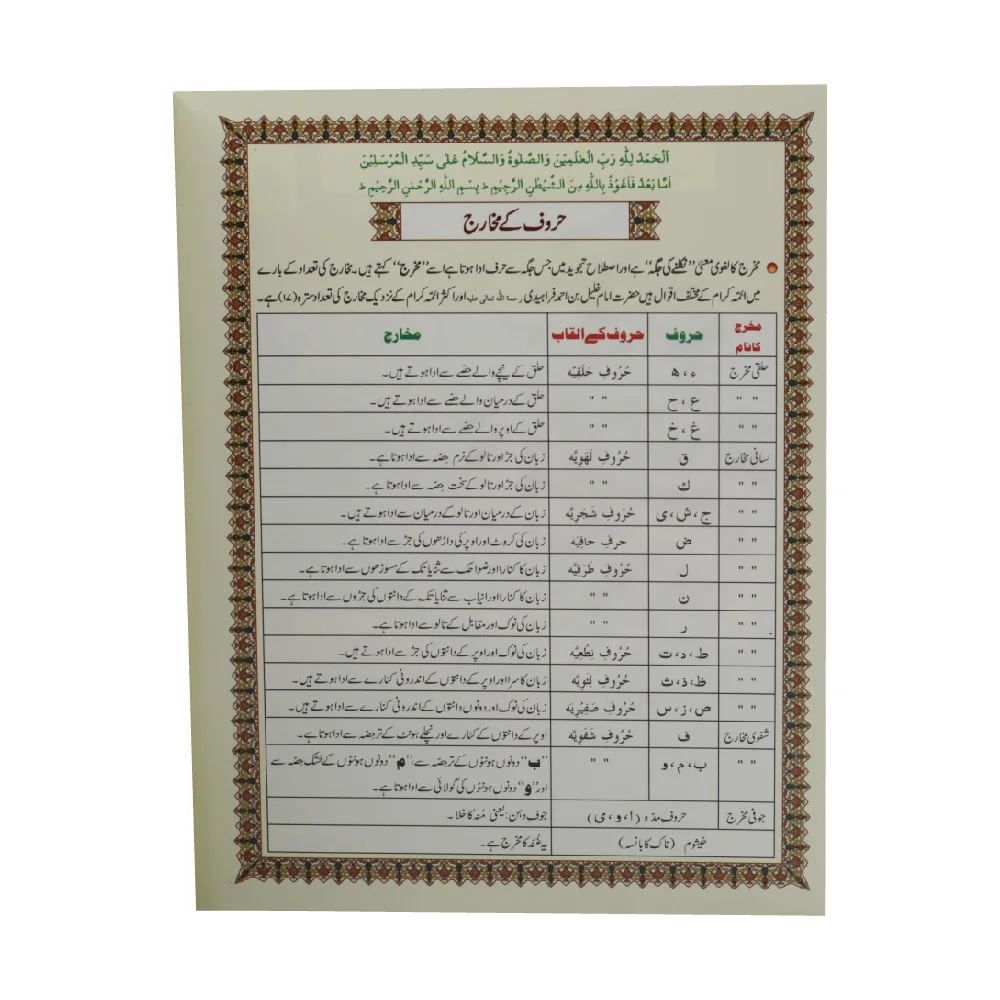 اَلْحَمْدُ لِلّٰهِ رَبِّ الْعٰلَمِیْنَ وَالصَّلٰوةُ وَالسَّلَامُ عَلٰی سَیِّدِ الْمُرْسَلِیْنَ
اَمَّا بَعْدُ فَاَعُوْذُ بِاللّٰهِ مِنَ الشَّیْطٰنِ الرَّجِیْمِ ؕ بِسْمِ اللّٰهِ الرَّحْمٰنِ الرَّحِیْمِ ؕ
حروف کے مخارج
مخرج کا لغوی معنی ”نکلنے کی جگہ“ ہے اور اصطلاحِ تجوید میں جس جگہ سے حرف ادا ہوتا ہے اسے ”مخرج“ کہتے ہیں۔ مخارج کی تعداد کے بارے
میں ائمہ کرام کے مختلف اقوال ہیں حضرت امام خلیل بن احمد فراہیدی رحمۃ اللہ تعالیٰ علیہ اور اکثر ائمہ کرام کے نزدیک مخارج کی تعداد سترہ (۱۷) ہے۔
مخرج کا نام حروف حروف کے القاب مخارج
حلقی مخرج ء، ھ حُرُوفِ حَلَقِیَّه حلق کے نیچے والے حصّے سے ادا ہوتے ہیں۔
" " ع، ح " " حلق کے درمیان والے حصّے سے ادا ہوتے ہیں۔
" " غ، خ " " حلق کے اوپر والے حصّے سے ادا ہوتے ہیں۔
لسانی مخارج ق حُرُوفِ لَهَوِیَّه زبان کی جڑ اور تالو کے نرم حِصّہ سے ادا ہوتا ہے۔
" " ك " " زبان کی جڑ اور تالو کے سخت حِصّہ سے ادا ہوتا ہے۔
" " ج، ش، ی حُرُوفِ شَجَرِیَّه زبان کے درمیان اور تالو کے درمیان سے ادا ہوتے ہیں۔
" " ض حرفِ حافِیَه زبان کی کروٹ اور اوپر کی داڑھوں کی جڑ سے ادا ہوتا ہے۔
" " ل حُرُوفِ طَرَفِیَّه زبان کا کنارا اور ضواحک سے ثنایا تک کے مسوڑھوں سے ادا ہوتا ہے۔
" " ن " " زبان کا کنارا اور انیاب سے ثنایا تک کے دانتوں کی جڑوں سے ادا ہوتا ہے۔
" " ر " " زبان کی نوک اور مقابل کے تالو سے ادا ہوتا ہے۔
" " ط، د، ت حُرُوفِ نِطْعِیَّه زبان کی نوک اور اوپر کے دانتوں کی جڑ سے ادا ہوتے ہیں۔
" " ظ، ذ، ث حُرُوفِ لِثَوِیَّه زبان کا سرا اور اوپر کے دانتوں کے اندرونی کنارے سے ادا ہوتے ہیں۔
" " ص، ز، س حُرُوفِ صَفِیْرِیَه زبان کی نوک اور دونوں دانتوں کے اندرونی کنارے سے ادا ہوتے ہیں۔
شفوی مخارج ف حُرُوفِ شَفَوِیَّه اوپر کے دانتوں کے کنارے اور نچلے ہونٹ کے تر حِصّہ سے ادا ہوتا ہے۔
" " ب، م، و " " ”ب“ دونوں ہونٹوں کے تر حِصّہ سے، ”م“ دونوں ہونٹوں کے خشک حِصّہ سے
اور ”و“ دونوں ہونٹوں کی گولائی سے ادا ہوتا ہے۔
جوفی مخرج حروفِ مدّہ (ا، و، ی) جوفِ دہن: یعنی مُنہ کا خلا۔
خیشوم (ناک کا بانسہ) یہ غُنّہ کا مخرج ہے۔